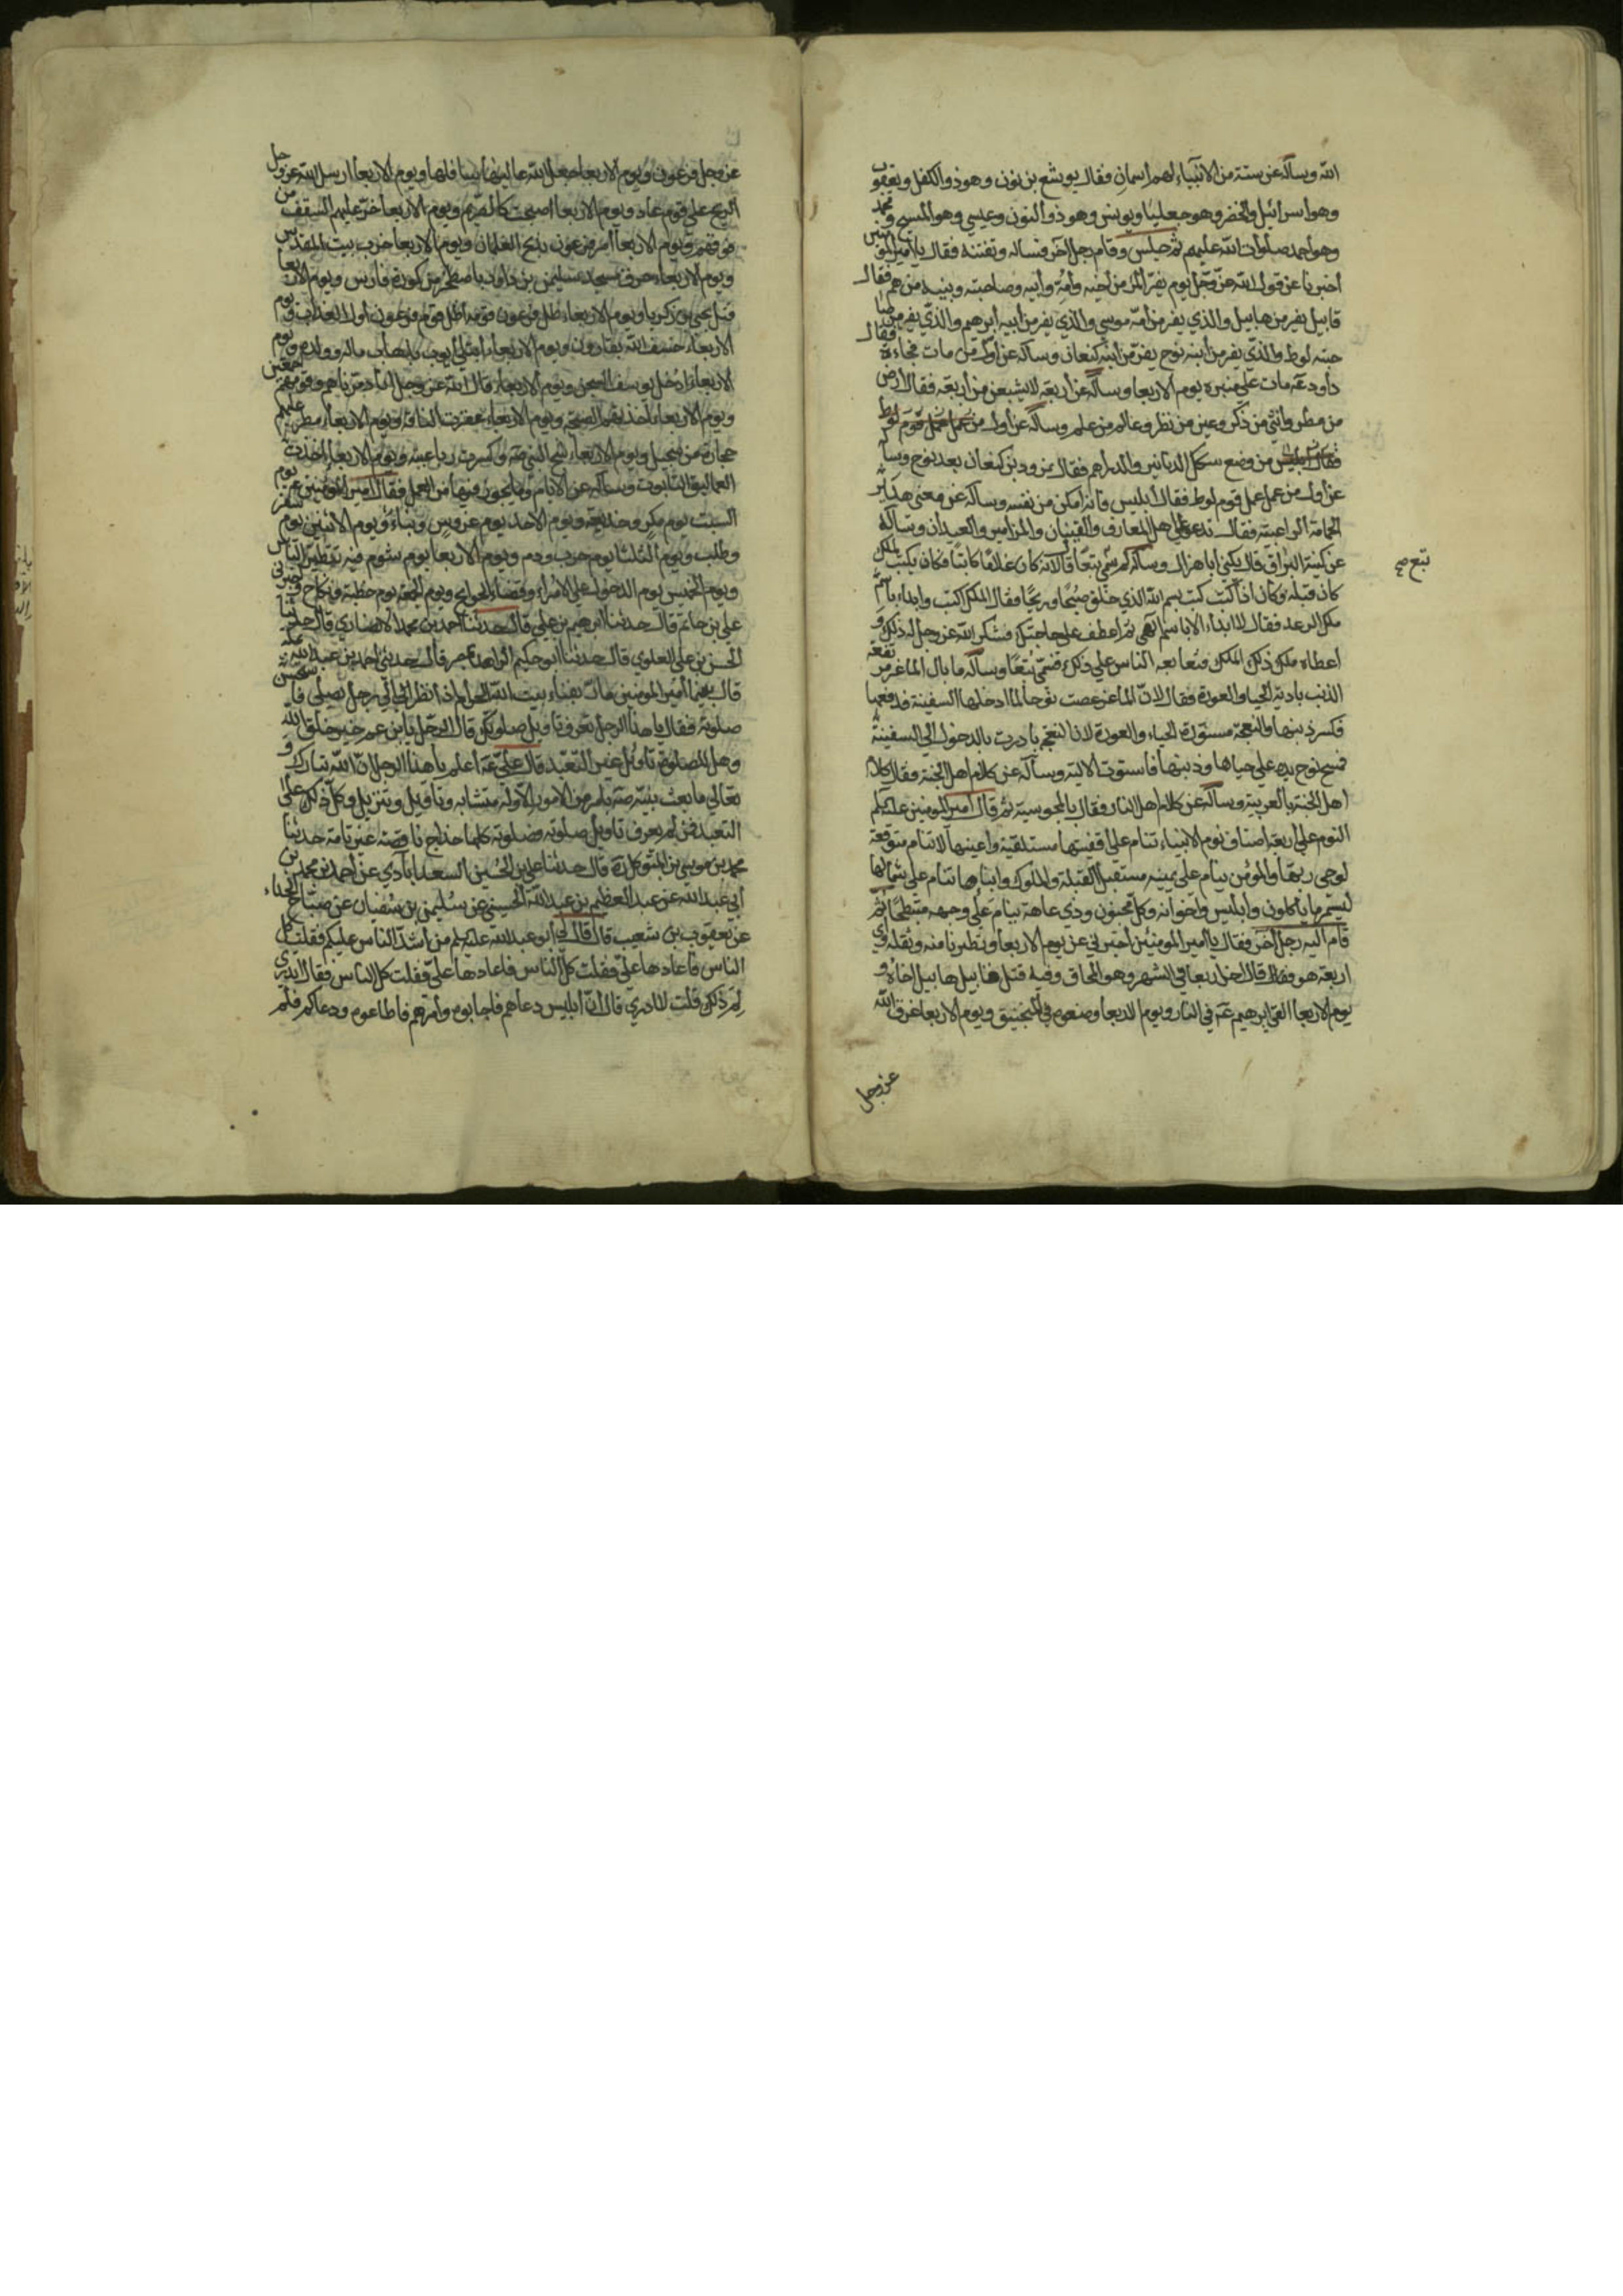 الله وسأله عن ستة من الانبياء لهم اسمان فقال يوشع بن نون وهو ذو الكفل ويعقوب
وهو اسرائيل والخضر وهو جعليا ويونس وهو ذو النون وعيسى وهو المسيح ومحمد
وهو احمد صلوات الله عليهم ثم جلس وقام رجل آخر فسأله وتعنته فقال يا امير المؤمنين
اخبرنا عن قول الله عز وجل يوم يفر المرء من اخيه وامه وابيه وصاحبته وبنيه من هم فقال
قابيل يفر من هابيل والذي يفر من امه موسى والذي يفر من ابيه ابرهيم والذي يفر من صا
حبته لوط والذي يفر من ابنه نوح يفر من ابنه كنعان وسأله عن اول من مات فجاءة فقال
داود عه مات على منبره يوم الاربعا وسأله عن اربعة لا يشبعن من اربعة فقال ارض
من مطر وانثى من ذكر وعين من نظر وعالم من علم وسأله عن اول من عمل عمل قوم لوط
فقال من وضع سكك الدنانير والدراهم فقال نمرود بن كنعان بعد نوح وسأله
عن اول من عمل عمل قوم لوط فقال ابليس فانه امكن من نفسه وسأله عن معنى هدير
الحمامة الراعبية فقال تدعو على اهل المعازف والقينان والمزامير والعيدان وسأله
عن كنية البراق قال يكنى ابا هزال وسأله لم سمي تبعا قال لانه كان غلاما كاتبا فكان يكتب لملك
كان قبله وكان اذا كتب كتب بسم الله الذي خلق صبحا وريحا فقال الملك اكتب وابداء باسم
ملك الرعد فقال لا ابداء الا باسم الهي ثم اعطف على حاجتك فشكر الله عز وجل له ذلك و
اعطاه ملك ذلك الملك فتابعه الناس على ذلك فسمي تبعا وسأله ما بال الماعز مرفعة
الذنب بادية الحيا والعورة فقال لان الماعز عصت نوحا لما ادخلها السفينة فدفعها
فكسر ذنبها والنعجة مستورة الحياء والعورة لان النعجة بادرت بالدخول الى السفينة
فمسح نوح يده على حياها وذنبها فاستوت الالية وسأله عن كلام اهل الجنة فقال كلام
اهل الجنة بالعربية وسأله عن كلام اهل النار فقال بالمجوسية ثم قال امير المؤمنين عليه السلام
النوم على اربعة اصناف نوم الانبياء تنام على اقفيتها مستلقية واعينها لا تنام متوقعة
لوحي ربها والمؤمن ينام على يمينه مستقبل القبلة والملوك وابناوها تنام على شمالها
ليستمرءوا ما ياكلون وابليس واخوانه وكل مجنون وذي عاهة ينام على وجهه منبطحا ثم
قام اليه رجل آخر فقال يا امير المؤمنين اخبرني عن يوم الاربعا وتطيرنا منه وثقله واي
اربعة هو فقال آخر اربعا في الشهر وهو المحاق وفيه قتل قابيل هابيل اخاه و
يوم الاربعا القي ابرهيم عه في النار ويوم الاربعا وضعوه في المنجنيق ويوم الاربعا غرق الله
عز وجل
تبع صح
عز وجل فرعون ويوم الاربعا جعل الله عاليها سافلها ويوم الاربعا ارسل الله عز وجل
الريح على قوم عاد ويوم الاربعا اصبحت كالصريم ويوم الاربعا خر عليهم السقف من
فوقهم ويوم الاربعا امر فرعون بذبح الغلمان ويوم الاربعا خرب بيت المقدس
ويوم الاربعاء حرق مسجد سليمن بن داود باصطخر من كورة فارس ويوم الاربعا
قتل يحيى بن زكريا ويوم الاربعاء اظل قوم فرعون اول العذاب ويوم
الاربعاء خسف الله بقارون ويوم الاربعاء ابتلى ايوب بذهاب ماله وولده ويوم
الاربعاء ادخل يوسف السجن ويوم الاربعاء قال الله عز وجل انا دمرناهم وقومهم اجمعين
ويوم الاربعاء اخذتهم الصيحة ويوم الاربعاء عقرت الناقة ويوم الاربعاء مطر عليهم
حجارة من سجيل ويوم الاربعاء شج النبي صه وكسرت رباعيته ويوم الاربعاء اخذت
العماليق التابوت وسأله عن الايام وما يجوز فيها من العمل فقال امير المؤمنين عه يوم
السبت يوم مكر وخديعة ويوم الاحد يوم غرس وبناء ويوم الاثنين يوم سفر
وطلب ويوم الثلثا يوم حرب ودم ويوم الاربعا يوم شوم فيه تتطير الناس
ويوم الخميس يوم الدخول على الامراء وقضاء الحوايج ويوم الجمعة يوم خطبة ونكاح اخبرني
علي بن حاتم قال حدثنا ابرهيم بن علي قال حدثنا احمد بن محمد الانصاري قال حدثنا
الحسن بن علي العلوي قال حدثنا ابو حكيم الزاهد بمصر قال حدثني احمد بن عبد الله بمكة
قال بينما امير المومنين مار بفناء بيت الله الحرام اذ نظر الى رجل يصلي فاستحسن
صلوته فقال يا هذا الرجل تعرف تاويل صلوتك قال الرجل يا بن عم خير خلق الله
وهل للصلوة تاويل غير التعبد قال علي عه اعلم يا هذا الرجل ان الله تبارك و
تعالى ما بعث نبيه صه بامر من الامور الا وله متشابه وتاويل وتنزيل وكل ذلك على
التعبد فمن لم يعرف تاويل صلوته فصلوته كلها خداج ناقصة غير تامة حدثنا
محمد بن موسى بن المتوكل ره قال حدثنا علي بن الحسين السعدابادي عن احمد بن محمد بن
ابي عبد الله عن عبد العظيم بن عبد الله الحسيني عن سليمن بن سفيان عن صباح الحذاء
عن يعقوب بن شعيب قال قال لي ابو عبد الله عليه السلام من اشد الناس عليكم فقلت كل
الناس فاعادها علي فقلت كل الناس فاعادها علي فقلت كل الناس فقال اتدري
لم ذلك قلت لا ادري قال ان ابليس دعاهم فاجابوه وامرهم فاطاعوه ودعاكم فلم